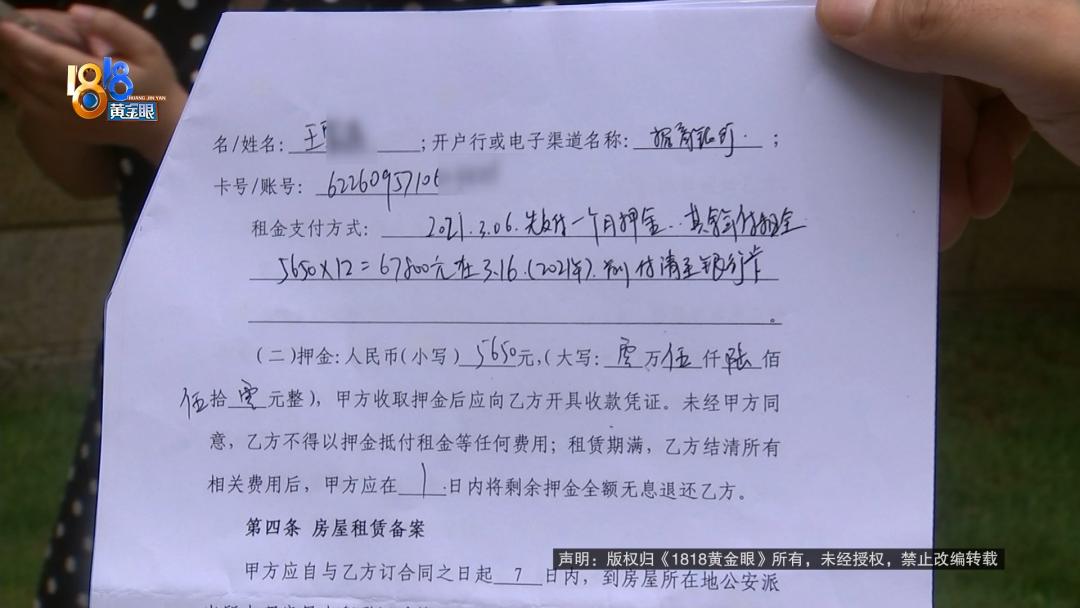 1818
HUANG JIN YAN
黄金眼
名/姓名：王 ；开户行或电子渠道名称：招商银行 ；
卡号/账号：62260957106
租金支付方式：2021.3.06.先支付一个月押金..其余 付租金
5650×12=67800元在3.16.(2021年). 付清至银行卡
。
（二）押金：人民币（小写）5650元，（大写：零万伍仟陆佰
伍拾零元整），甲方收取押金后应向乙方开具收款凭证。未经甲方同
意，乙方不得以押金抵付租金等任何费用；租赁期满，乙方结清所有
相关费用后，甲方应在1日内将剩余押金全额无息退还乙方。
第四条 房屋租赁备案
声明：版权归《1818黄金眼》所有，未经授权，禁止改编转载
甲方应自与乙方订合同之日起7日内，到房屋所在地公安派